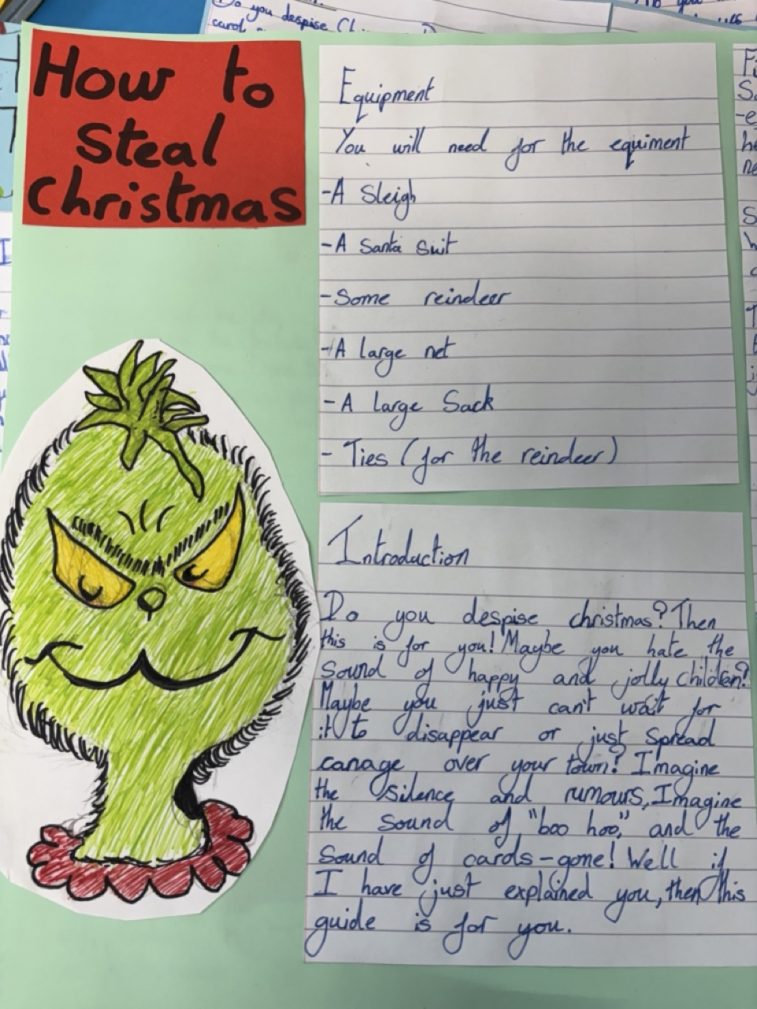 How to
Steal
Christmas
Equipment
You will need for the equiment
-A Sleigh
-A Santa Suit
-Some reindeer
-A large net
-A large Sack
- Ties (for the reindeer)
Introduction
Do you despise christmas? Then
this is for you! Maybe you hate the
Sound of happy and jolly children?
Maybe you just can't wait for
it to disappear or just Spread
canage over your town? Imagine
the silence and rumours, Imagine
the sound of "boo hoo," and the
Sound of cards-gone! Well if
I have just explained you, then this
guide is for you.